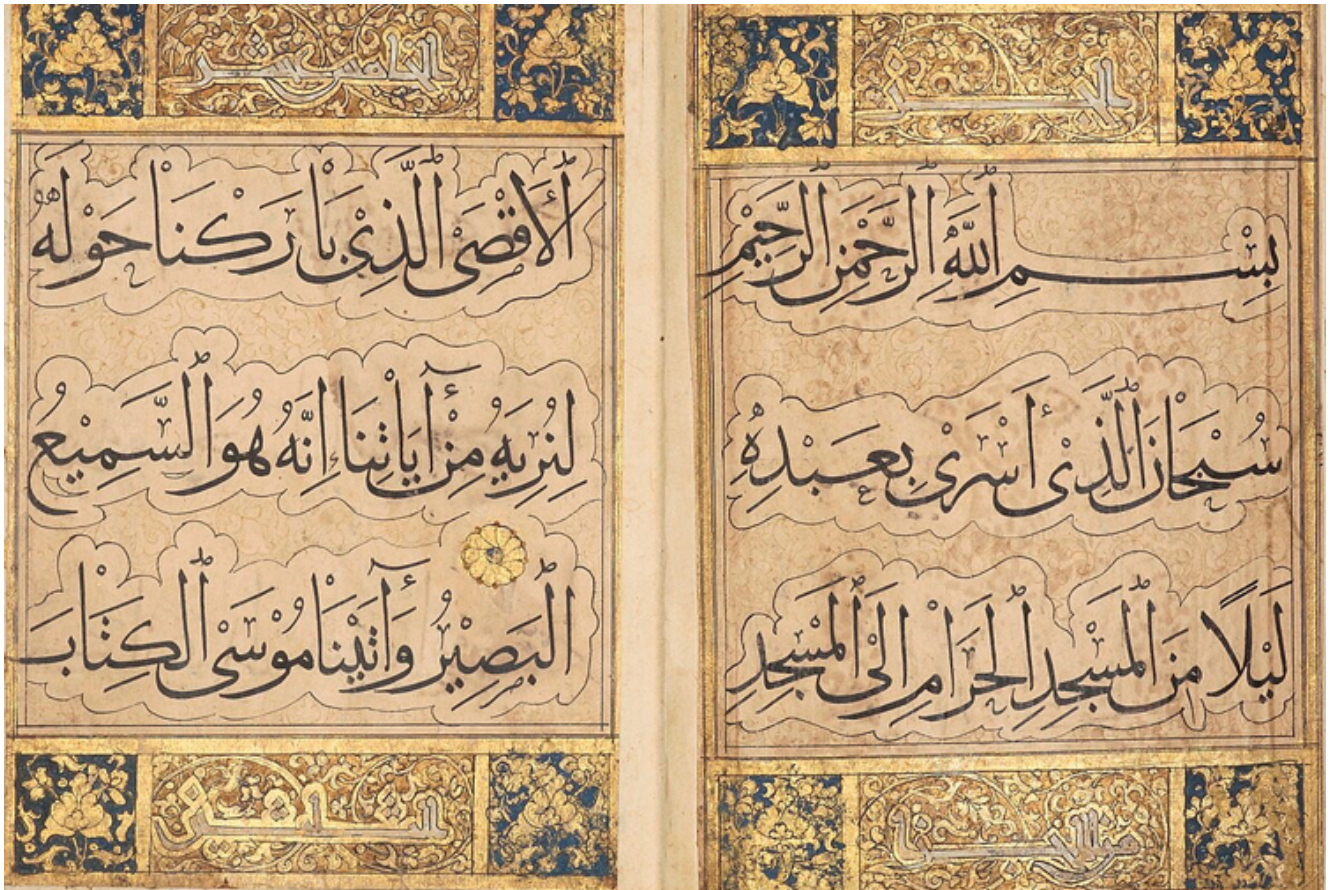 الجز
بِسْمِ ٱللَّهِ ٱلرَّحْمٰنِ ٱلرَّحِيْمِ
سُبْحَانَ ٱلَّذِىْ أَسْرٰى بِعَبْدِهٖ
لَيْلًا مِنَ ٱلْمَسْجِدِ ٱلْحَرَامِ اِلَى ٱلْمَسْجِدِ
الخامس عشر
ٱلْأَقْصَى ٱلَّذِيْ بَارَكْنَا حَوْلَهُ
لِنُرِيَهُ مِنْ أٓيَاتِنَا اِنَّهُ هُوَ ٱلسَّمِيْعُ
ٱلْبَصِيْرُ وَأٓتَيْنَا مُوْسَى ٱلْكِتَابَ